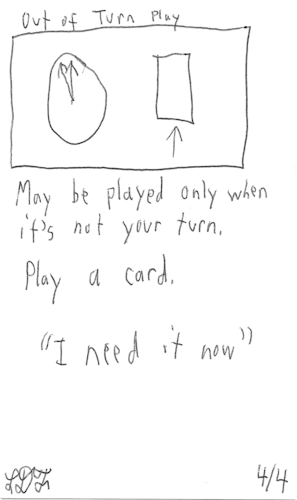 Out of Turn Play
May be played only when
it's not your turn.
Play a card.
"I need it now"
4/4